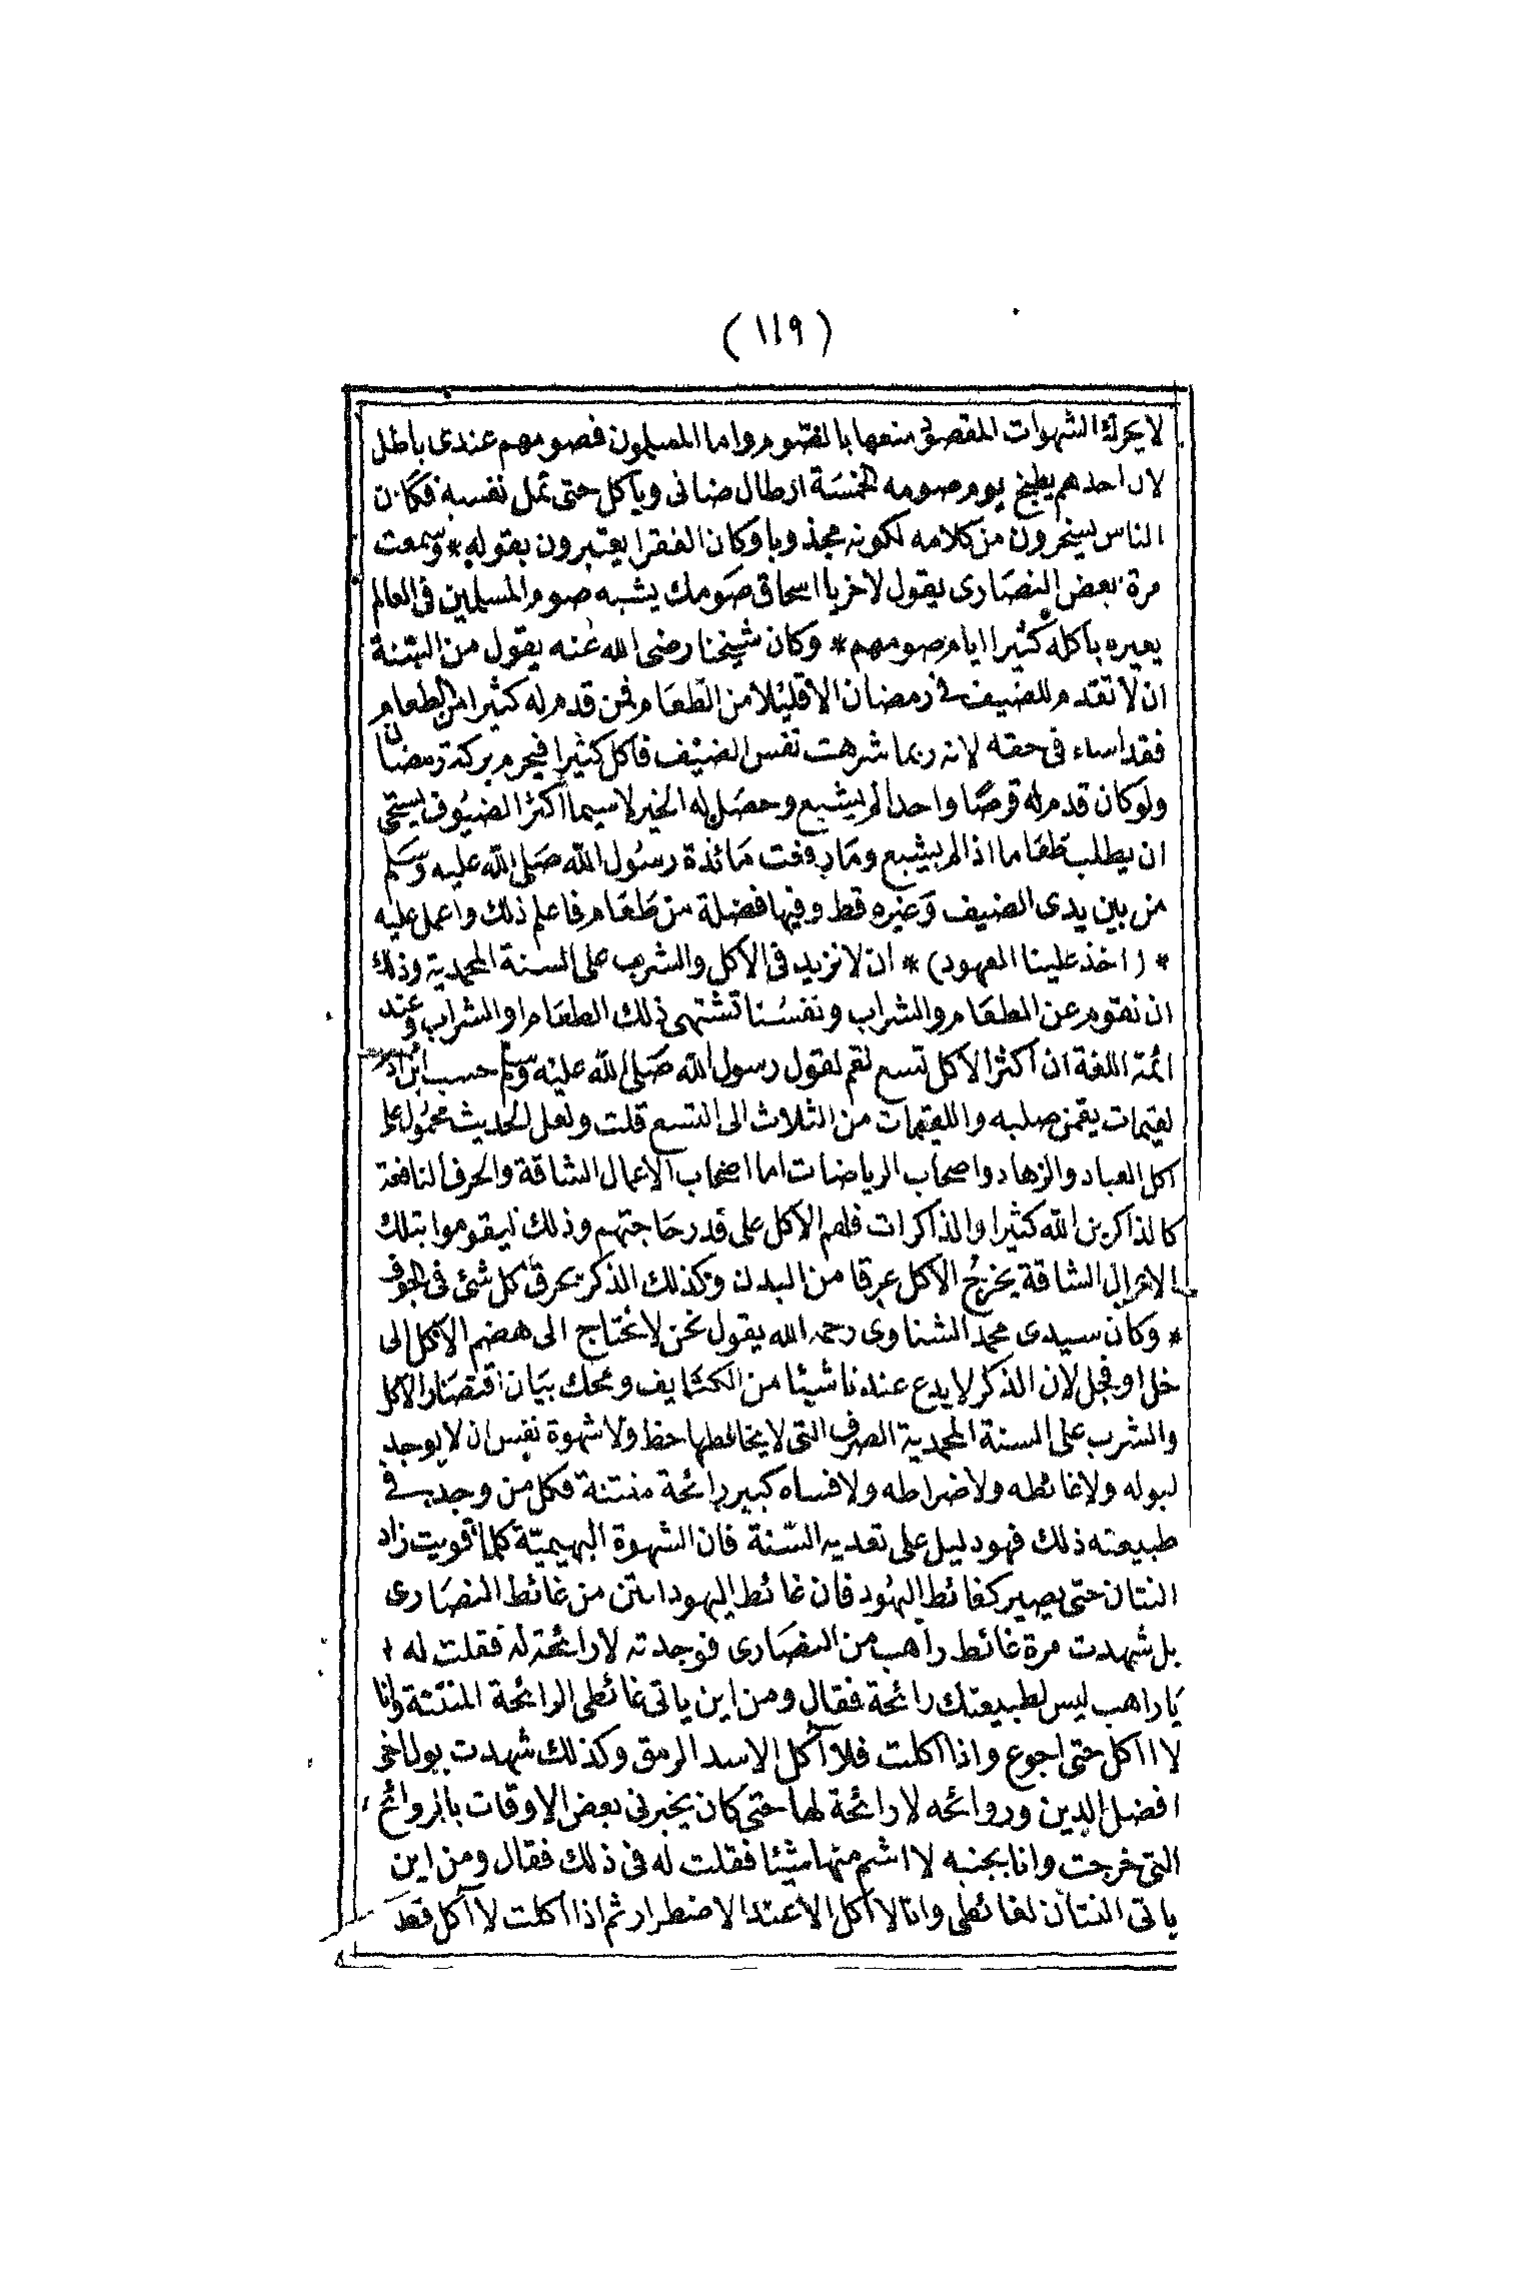 (١١٩)
لا يحرك الشهوات المقصود منعها بالصوم واما المسلمون فصومهم عندى باطل
لان احدهم يطبخ يوم صومه الخمسة ارطال ضانى ويأكل حتى تمل نفسه فكان
الناس يسخرون من كلامه لكونه مجذوبا وكان الفقرا يعتبرون بقوله * وسمعت
مرة بعض النصارى يقول لاخر يا اسحاق صومك يشبه صوم المسلمين فى العالم
يعيره باكله كثيرا ايام صومهم * وكان شيخنا رضى الله عنه يقول من السنة
ان لا تقدم للضيف فى رمضان الا قليلا من الطعام فمن قدم له كثيرا من الطعام
فقد اساء فى حقه لانه ربما شرهت نفس الضيف فاكل كثيرا فيحرم بركة رمضان
ولو كان قدم له قرصا واحدا لم يشبع وحصل له الخير لا سيما اكثر الضيوف يستحى
ان يطلب طعاما اذا لم يشبع وما رفعت مائدة رسول الله صلى الله عليه وسلم
من بين يدى الضيف وغيره قط وفيها فضلة من طعام فاعلم ذلك واعمل عليه
* (اخذ علينا العهود) * ان لا نزيد فى الاكل والشرب على السنة المحمدية وذلك
ان نقوم عن الطعام والشراب ونفسنا تشتهى ذلك الطعام او الشراب وعند
ائمة اللغة ان اكثر الاكل تسع لقم لقول رسول الله صلى الله عليه وسلم حسب ابن ادم
لقيمات يقمن صلبه واللقيمات من الثلاث الى التسع قلت ولعل الحديث محمول على
اكل العباد والزهاد واصحاب الرياضات اما اصحاب الاعمال الشاقة والحرف النافعة
كالذاكرين الله كثيرا والذاكرات فلهم الاكل على قدر حاجتهم وذلك ليقوموا بتلك
الاعمال الشاقة يخرج الاكل عرقا من البدن وكذلك الذكر يحرق كل شئ فى الجوف
* وكان سيدى محمد الشناوى رحمه الله يقول نحن لا نحتاج الى هضم الاكل الى
خل او فجل لان الذكر لا يدع عندنا شيئا من الكثايف ومحك بيان اقتصار الاكل
والشرب على السنة المحمدية الصرف التى لا يخالطها حظ ولا شهوة نفس ان لا يوجد
لبوله ولا غائطه ولا ضراطه ولا فساه كبير رائحة منتنة فكل من وجد فى
طبيعته ذلك فهو دليل على تعديه السنة فان الشهوة البهيمية كلما قويت زاد
النتان حتى يصير كغائط اليهود فان غائط اليهود انتن من غائط النصارى
بل شهدت مرة غائط راهب من النصارى فوجدته لا رائحة له فقلت له
يا راهب ليس لطبيعتك رائحة فقال ومن اين ياتى غائطى الرائحة المنتنة وانا
لا اكل حتى اجوع واذا اكلت فلا آكل الا سد الرمق وكذلك شهدت بول اخى
افضل الدين وروائحه لا رائحة لها حتى كان يخبرنى بعض الاوقات بالروائح
التى خرجت وانا بجنبه لا اشم منها شيئا فقلت له فى ذلك فقال ومن اين
ياتى النتان لغائطى وانا لا آكل الا عند الاضطرار ثم اذا اكلت لا آكل قط